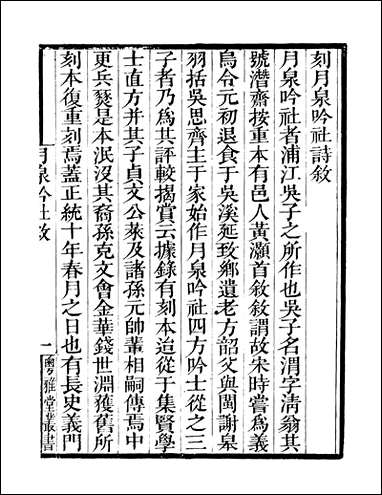 刻月泉吟社詩敘
月泉吟社者浦江吳子之所作也吳子名渭字淸翁其
號潛齋按重本有邑人黃灝首敘敘謂故宋時嘗爲義
烏令元初退食于吳溪延致鄉遺老方韶父與閩謝皋
羽括吳思齊主于家始作月泉吟社四方吟士從之三
子者乃爲其評較揭賞云據錄有刻本迨從于集賢學
士直方并其子貞文公萊及諸孫元帥輩相嗣傳焉中
更兵燹是本泯沒其裔孫克文會金華錢世淵獲舊所
刻本復重刻焉蓋正統十年春月之日也有長史義門
月泉吟社敘
一
粵雅堂叢書